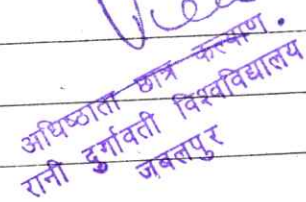 अधिष्ठाता छात्र कल्याण.
रानी दुर्गावती विश्वविद्यालय
जबलपुर